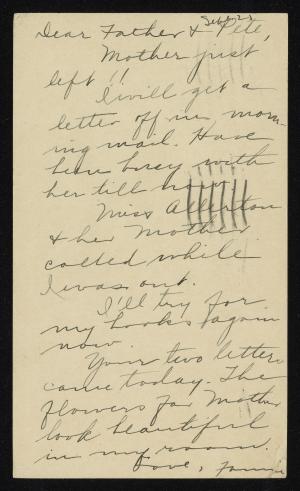 Sept. 2
Dear Father & Pete,
Mother just
left!!
I will get a
letter off in morn-
ing mail. Have
been busy with
her till
Miss Allerton
& her Mother
called while
I was out.
I'll try for
my books again
now.
Your two letters
came today. The
flowers for Mother
look beautiful
in my room.
Love,